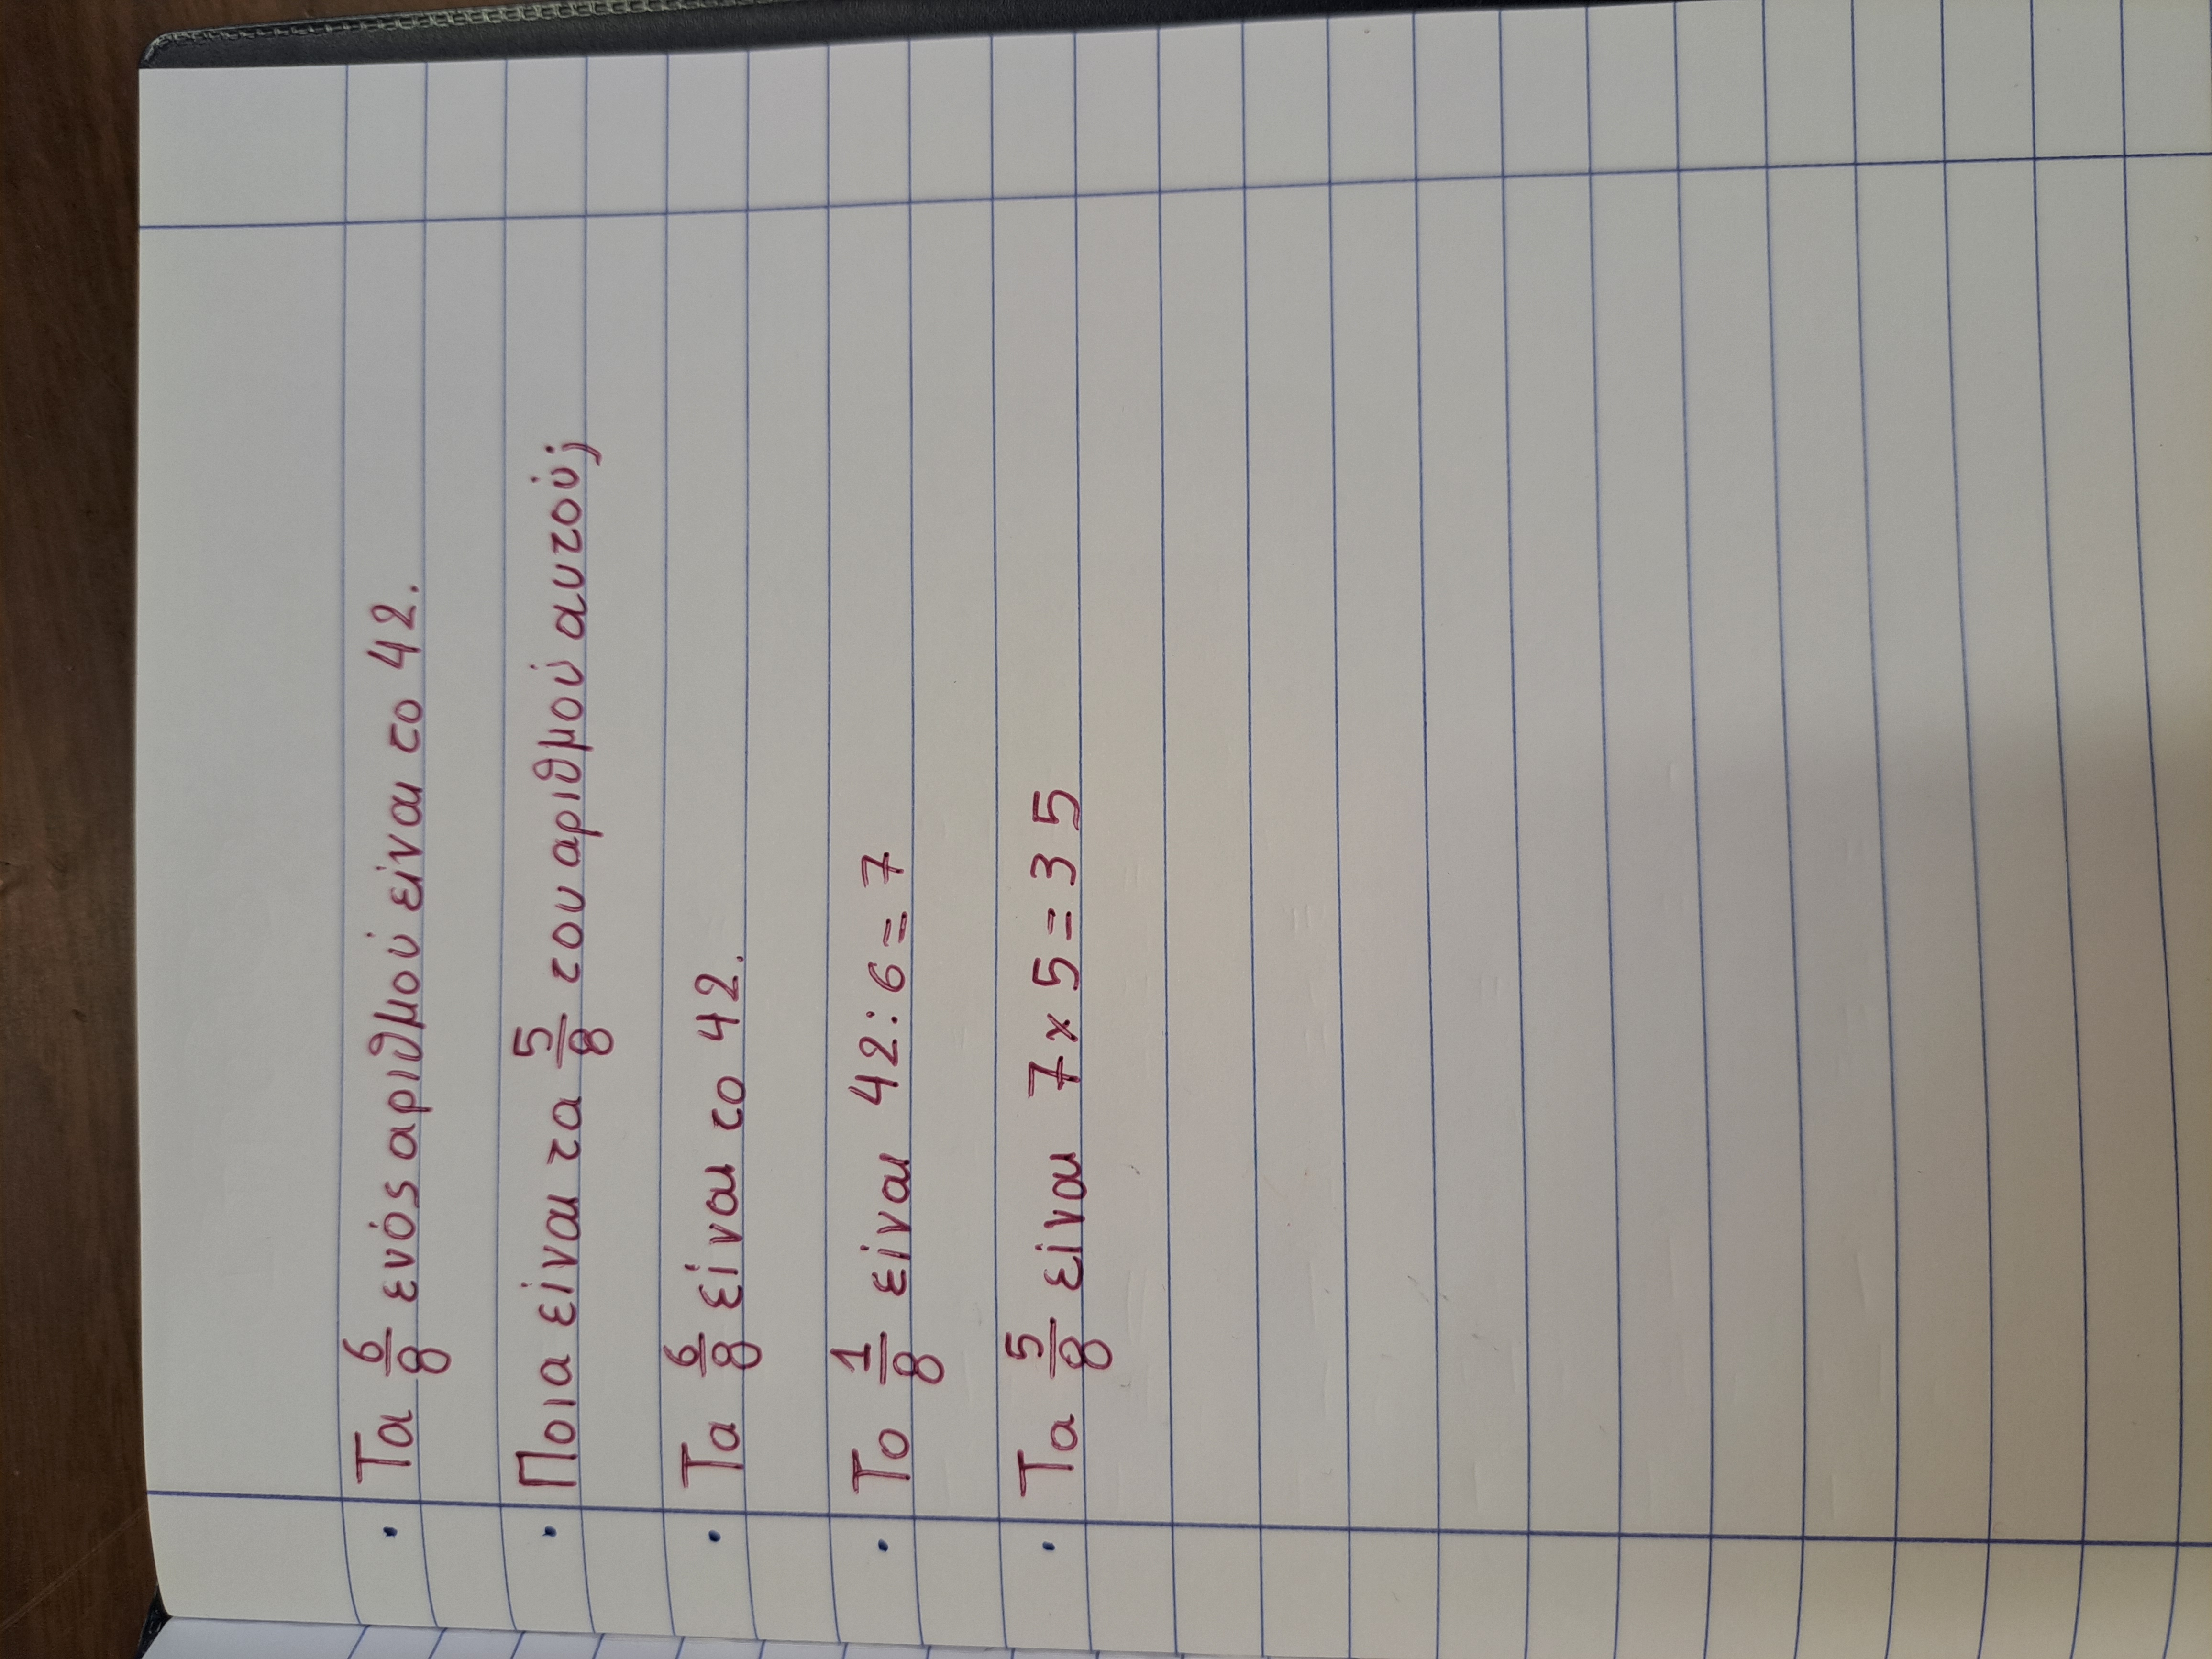 · Τα 6/8 ενός αριθμού είναι το 42.
· Ποια είναι τα 5/8 του αριθμού αυτού;
· Τα 6/8 είναι το 42.
· Το 1/8 είναι 42:6=7
· Τα 5/8 είναι 7×5=35